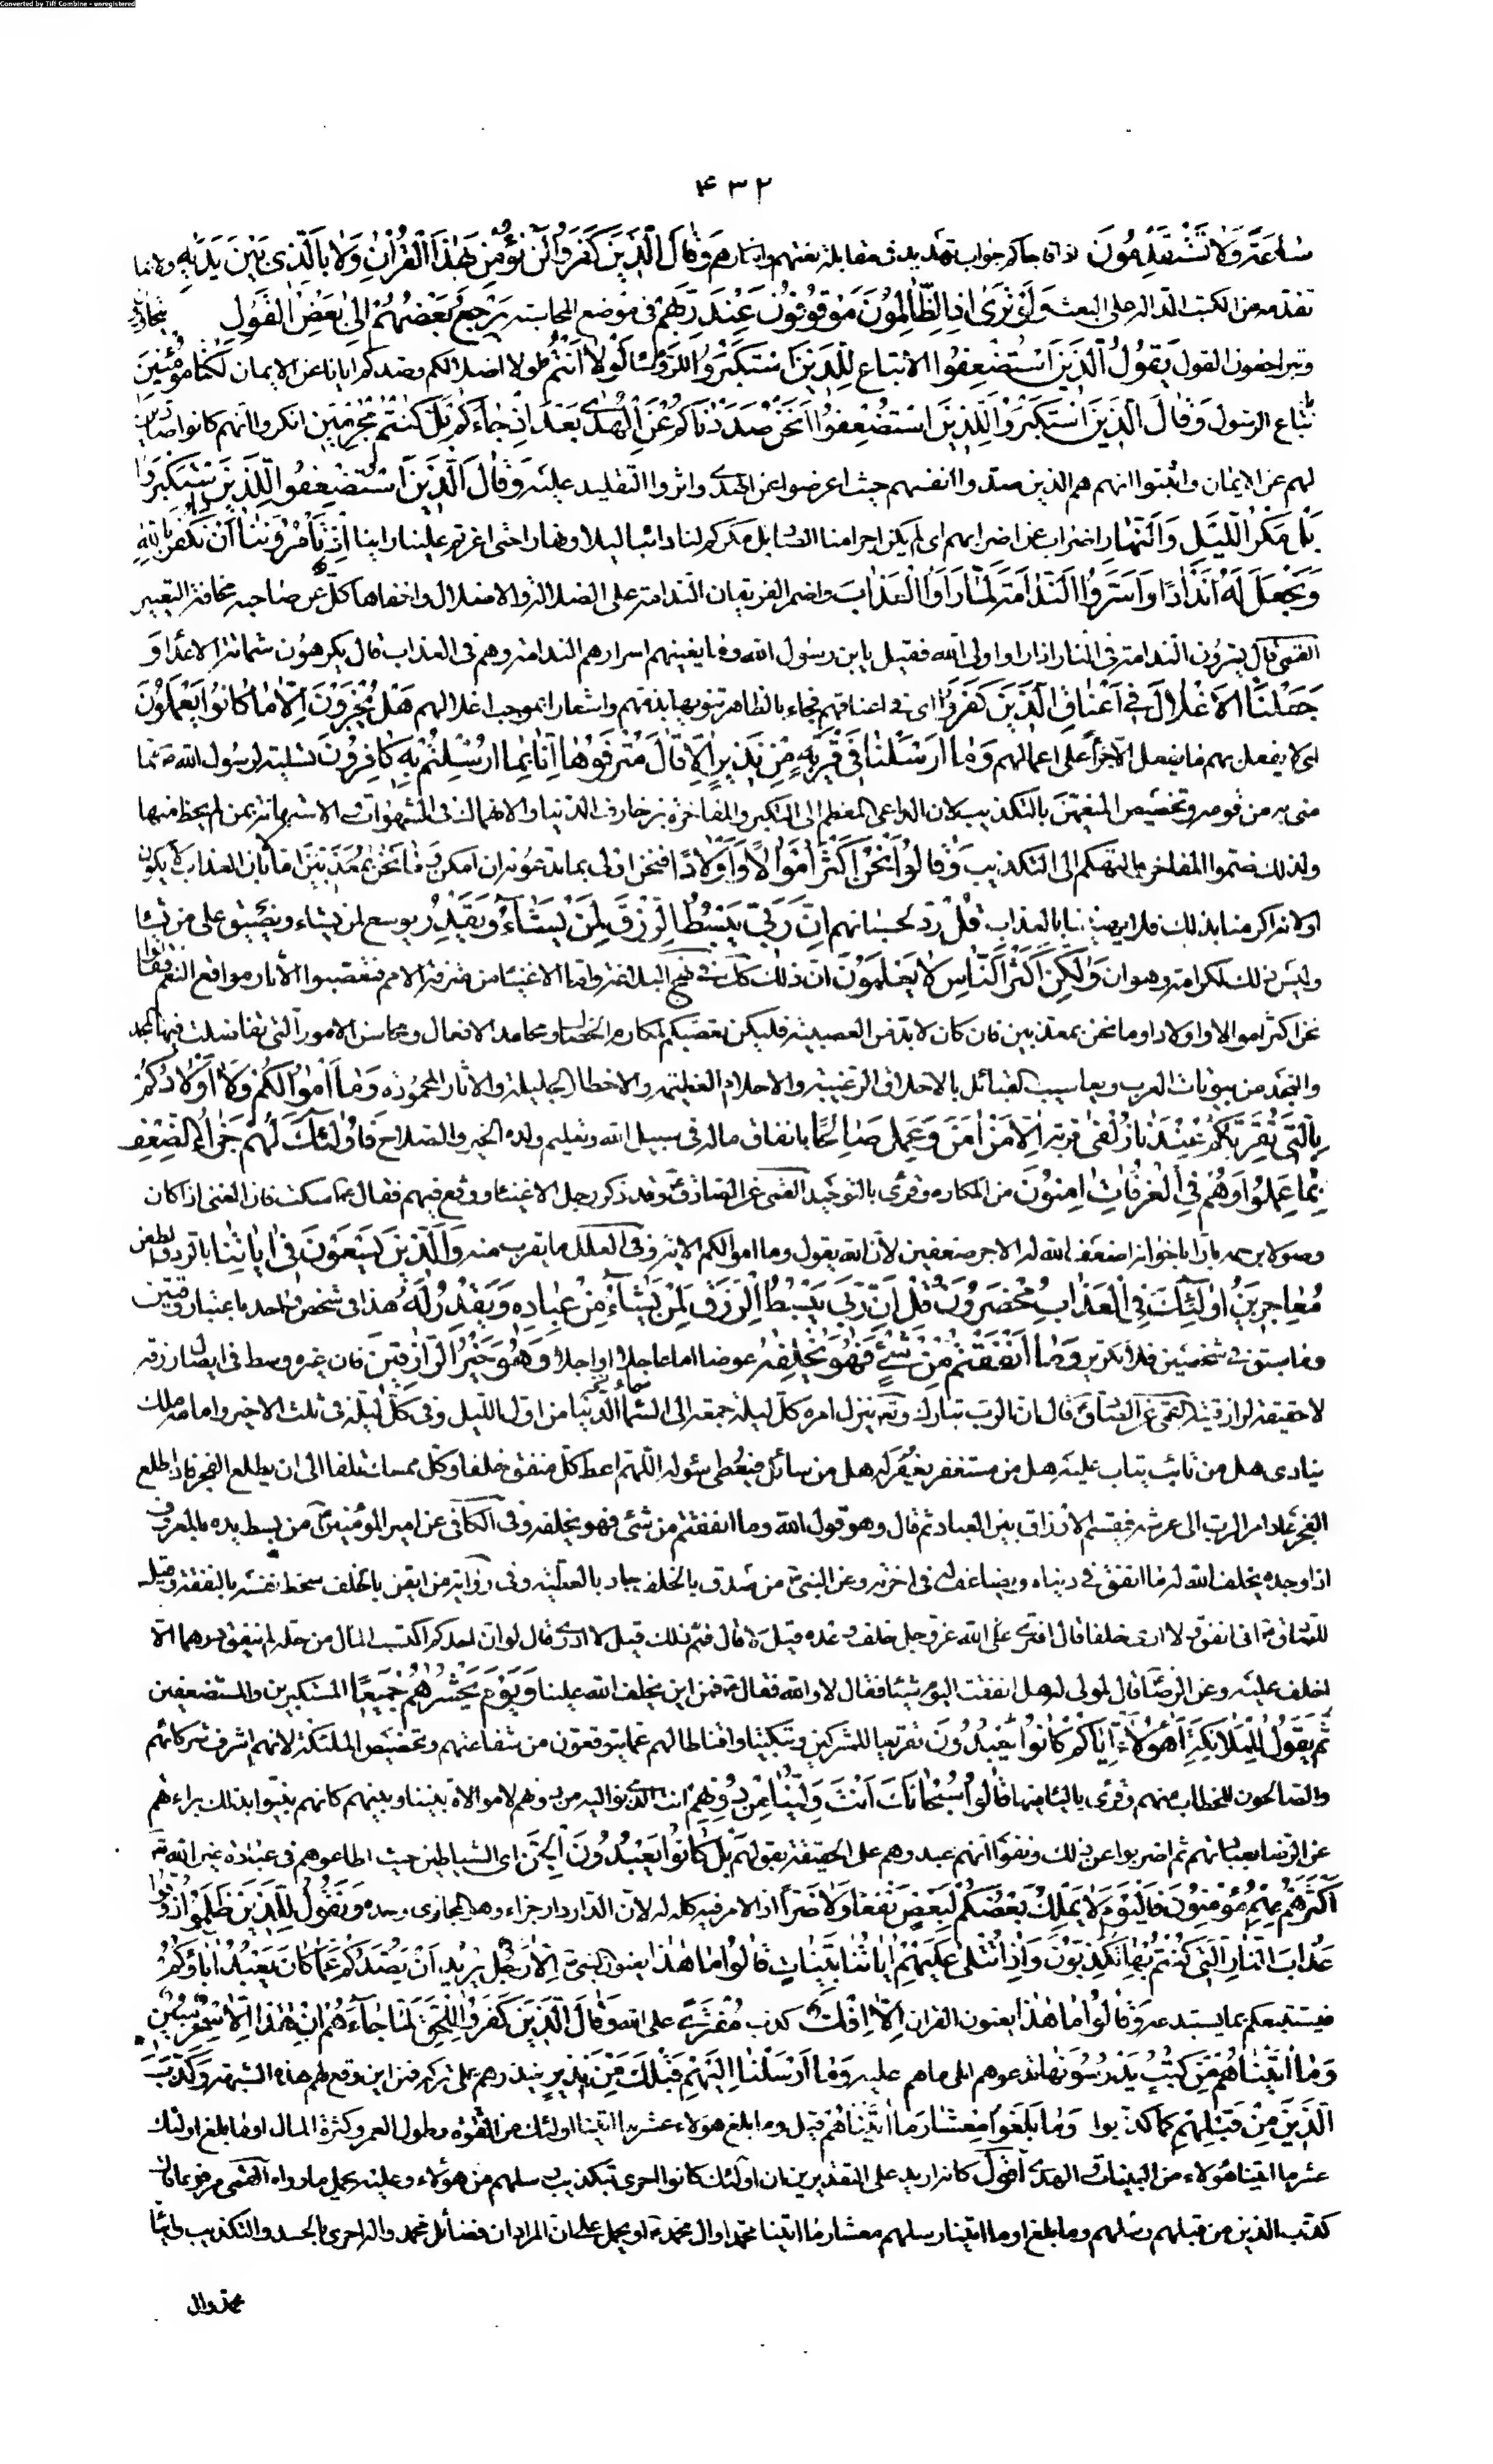 Converted by Tiff Combine - unregistered
۴۳۲
سٰاعَةً وَلاٰ تَسْتَقْدِمُونَ اذا جاءكم جواب تهديد في مقابلة تعنتهم وانكارهم وَقٰالَ الَّذِينَ كَفَرُوا لَنْ نُؤْمِنَ بِهٰذَا الْقُرْآنِ وَلاٰ بِالَّذِي بَيْنَ يَدَيْهِ ولا بما
تقدمه من الكتب الدالة على البعث وَلَوْ تَرىٰ اِذِ الظّٰالِمُونَ مَوْقُوفُونَ عِنْدَ رَبِّهِمْ في موضع المحاسبة يَرْجِعُ بَعْضُهُمْ اِلىٰ بَعْضٍ الْقَوْلَ يتحاورون
ويتراجعون القول يَقُولُ الَّذِينَ اسْتُضْعِفُوا الاتباع لِلَّذِينَ اسْتَكْبَرُوا للرؤساء لَوْلاٰ اَنْتُمْ لولا اضلالكم وصدكم ايانا عن الايمان لَكُنّٰا مُؤْمِنِينَ
باتباع الرسول وَقٰالَ الَّذِينَ اسْتَكْبَرُوا لِلَّذِينَ اسْتُضْعِفُوا اَنَحْنُ صَدَدْنٰاكُمْ عَنِ الْهُدىٰ بَعْدَ اِذْ جٰاءَكُمْ بَلْ كُنْتُمْ مُجْرِمِينَ انكروا انهم كانوا صادين
لهم عن الايمان واثبتوا انهم هم الذين صدوا انفسهم حيث اعرضوا عن الهدى واثروا التقليد عليه وَقٰالَ الَّذِينَ اسْتُضْعِفُوا لِلَّذِينَ اسْتَكْبَرُوا
بَلْ مَكْرُ اللَّيْلِ وَالنَّهٰارِ اضراب عن اضرابهم اي لم يكن اجرامنا الصاد بل مكركم لنا دائبا ليلا ونهارا حتى اغرتم علينا راينا اِذْ تَأْمُرُونَنٰا اَنْ نَكْفُرَ بِاللهِ
وَنَجْعَلَ لَهُ اَنْدٰادًا وَاَسَرُّوا النَّدٰامَةَ لَمّٰا رَاَوُا الْعَذٰابَ واضمر الفريقان الندامة على الضلالة والاضلال واخفاها كل عن صاحبه مخافة التعيير
القمي قال يسرون الندامة في النار اذا راوا ولي الله فقيل يا بن رسول الله وما يغنيهم اسرارهم الندامة وهم في العذاب قال يكرهون شماتة الاعداء وَ
جَعَلْنَا الاَغْلاٰلَ فِي اَعْنٰاقِ الَّذِينَ كَفَرُوا اي في اعناقهم فجاء بالظاهر تنويها بذمهم واشعارا بموجب اغلالهم هَلْ يُجْزَوْنَ اِلاّٰ مٰا كٰانُوا يَعْمَلُونَ
اي لا يفعل بهم ما يفعل الا جزاء على اعمالهم وَمٰا اَرْسَلْنٰا فِي قَرْيَةٍ مِنْ نَذِيرٍ اِلاّٰ قٰالَ مُتْرَفُوهٰا اِنّٰا بِمٰا اُرْسِلْتُمْ بِهِ كٰافِرُونَ تسلية لرسول الله ص مما
منى به من قومه وتخصيص المنعمين بالتكذيب لان الداعي المعظم الى التكبر والمفاخرة بزخارف الدنيا والانهماك في الشهوات والاستهانة بمن لم يحظ منها
ولذلك ضموا المفاخرة والتهكم الى التكذيب وَقٰالُوا نَحْنُ اَكْثَرُ اَمْوٰالاً وَاَوْلاٰدًا فنحن اولى بما تدعونه ان امكن وَمٰا نَحْنُ بِمُعَذَّبِينَ اما لان العذاب لا يكون
او لانه اكرمنا بذلك فلا يهيننا بالعذاب قُلْ رد لحسبانهم اِنَّ رَبِّي يَبْسُطُ الرِّزْقَ لِمَنْ يَشٰاءُ وَيَقْدِرُ يوسع لمن يشاء ويضيق على من يشاء
وليس ذلك لكرامة وهوان وَلٰكِنَّ اَكْثَرَ النّٰاسِ لاٰ يَعْلَمُونَ ان ذلك كذلك في نهج البلاغة واما الاغنياء من مترفة الامم فتعصبوا لآثار مواقع النعم فقالوا
نحن اكثر اموالا واولادا وما نحن بمعذبين فان كان لا بد من العصبية فليكن تعصبكم لمكارم الخصال ومحامد الافعال ومحاسن الامور التي تفاضلت فيها المجداء
والنجداء من بيوتات العرب ويعاسيب القبائل بالاخلاق الرغيبة والاحلام العظيمة والاخطار الجليلة والاثار المحمودة وَمٰا اَمْوٰالُكُمْ وَلاٰ اَوْلاٰدُكُمْ
بِالَّتِي تُقَرِّبُكُمْ عِنْدَنٰا زُلْفىٰ قربة اِلاّٰ مَنْ اٰمَنَ وَعَمِلَ صٰالِحًا بانفاق ماله في سبيل الله وتعليم ولده الخير والصلاح فَاُولٰئِكَ لَهُمْ جَزٰاءُ الضِّعْفِ
بِمٰا عَمِلُوا وَهُمْ فِي الْغُرُفٰاتِ اٰمِنُونَ من المكاره وقرئ بالتوحيد القمي عن الصادق ع وقد ذكر رجل الاغنياء ووقع فيهم فقال ع اسكت فان الغني اذا كان
وصولا برحمه بارا باخوانه اضعف الله له الاجر ضعفين لان الله يقول وما اموالكم الاية وفي العلل ما يقرب منه وَالَّذِينَ يَسْعَوْنَ فِي اٰيٰاتِنٰا بالرد والطعن
مُعٰاجِزِينَ اُولٰئِكَ فِي الْعَذٰابِ مُحْضَرُونَ قُلْ اِنَّ رَبِّي يَبْسُطُ الرِّزْقَ لِمَنْ يَشٰاءُ مِنْ عِبٰادِهِ وَيَقْدِرُ لَهُ هذا في شخص واحد باعتبار وقتين
وما سبق في شخصين فلا تكرير وَمٰا اَنْفَقْتُمْ مِنْ شَيْءٍ فَهُوَ يُخْلِفُهُ عوضا اما عاجلا او اجلا وَهُوَ خَيْرُ الرّٰازِقِينَ فان غيره وسط في ايصال رزقه
لا حقيقة لرازقيته القمي عن الصادق ع قال ان الرب تبارك وتعالى ينزل امره كل ليلة جمعة الى السماء الدنيا من اول الليل وفي كل ليلة في ثلث الاخير وامامه ملك
ينادي هل من تائب يتاب عليه هل من مستغفر يغفر له هل من سائل فيعطى سئوله اللهم اعط كل منفق خلفا وكل ممسك تلفا الى ان يطلع الفجر فاذا طلع
الفجر عاد امر الرب الى عرشه فيقسم الارزاق بين العباد ثم قال وهو قول الله وما انفقتم من شئ فهو يخلفه وفي الكافي عن امير المؤمنين ع من بسط يده بالمعروف
اذا وجده يخلف الله له ما انفق في دنياه ويضاعف له في اخرته وعن النبي ص من صدق بالخلف جاد بالعطية وفي رواية من ايقن بالخلف سخط نفسه بالنفقة وقيل
للصادق ع اني انفق ولا ارى خلفا قال افترى على الله عز وجل خلف وعده قيل لا قال فمم ذلك قيل لا ادري قال لو ان احدكم اكتسب المال من حله لم ينفق درهما الا
اخلف عليه وعن الرضا ع قال لمولى له هل انفقت اليوم شيئا فقال لا والله فقال ع فمن اين يخلف الله علينا وَيَوْمَ يَحْشُرُهُمْ جَمِيعًا المستكبرين والمستضعفين
ثُمَّ يَقُولُ لِلْمَلاٰئِكَةِ اَهٰؤُلاٰءِ اِيّٰاكُمْ كٰانُوا يَعْبُدُونَ تقريعا للمشركين وتبكيتا واقناطا لهم عما يتوقعون من شفاعتهم وتخصيص الملئكة لانهم اشرف شركائهم
والصالحون للخطاب منهم وقرئ بالياء فيهما قٰالُوا سُبْحٰانَكَ اَنْتَ وَلِيُّنٰا مِنْ دُونِهِمْ انت الذي نواليه من دونهم لا موالاة بيننا وبينهم كانهم بينوا بذلك براءتهم
عن الرضا بعبادتهم ثم اضربوا عن ذلك ونفوا انهم عبدوهم على الحقيقة بقولهم بَلْ كٰانُوا يَعْبُدُونَ الْجِنَّ اي الشياطين حيث اطاعوهم في عبادة غير الله
اَكْثَرُهُمْ بِهِمْ مُؤْمِنُونَ فَالْيَوْمَ لاٰ يَمْلِكُ بَعْضُكُمْ لِبَعْضٍ نَفْعًا وَلاٰ ضَرًّا اذ الامر فيه كله له لان الدار دار جزاء وهو المجازي وحده وَنَقُولُ لِلَّذِينَ ظَلَمُوا ذُوقُوا
عَذٰابَ النّٰارِ الَّتِي كُنْتُمْ بِهٰا تُكَذِّبُونَ وَاِذٰا تُتْلىٰ عَلَيْهِمْ اٰيٰاتُنٰا بَيِّنٰاتٍ قٰالُوا مٰا هٰذٰا يعنون النبي ص اِلاّٰ رَجُلٌ يُرِيدُ اَنْ يَصُدَّكُمْ عَمّٰا كٰانَ يَعْبُدُ اٰبٰاؤُكُمْ
فيستتبعكم بما يستبدعه وَقٰالُوا مٰا هٰذٰا يعنون القران اِلاّٰ اِفْكٌ كذب مُفْتَرىً على الله وَقٰالَ الَّذِينَ كَفَرُوا لِلْحَقِّ لَمّٰا جٰاءَهُمْ اِنْ هٰذٰا اِلاّٰ سِحْرٌ مُبِينٌ
وَمٰا اٰتَيْنٰاهُمْ مِنْ كُتُبٍ يَدْرُسُونَهٰا تدعوهم الى ما هم عليه وَمٰا اَرْسَلْنٰا اِلَيْهِمْ قَبْلَكَ مِنْ نَذِيرٍ ينذرهم على تركه فمن اين وقع لهم هذه الشبهة وَكَذَّبَ
الَّذِينَ مِنْ قَبْلِهِمْ كما كذبوا وَمٰا بَلَغُوا مِعْشٰارَ مٰا اٰتَيْنٰاهُمْ قيل وما بلغ هؤلاء عشر ما اتينا اولئك من القوة وطول العمر وكثرة المال او ما بلغ اولئك
عشر ما اتينا هؤلاء من البينات والهدى اقول كانه اريد على التقديرين ان اولئك كانوا احرى بتكذيب رسلهم من هؤلاء وعليه يحمل ما رواه القمي مرفوعا قال
كذب الذين من قبلهم رسلهم وما بلغ ما اتينا رسلهم معشار ما اتينا محمدا وال محمد ع او يحمل على ان المراد ان فضائل محمد واله احرى بالحسد والتكذيب وايتاء
محمد وال